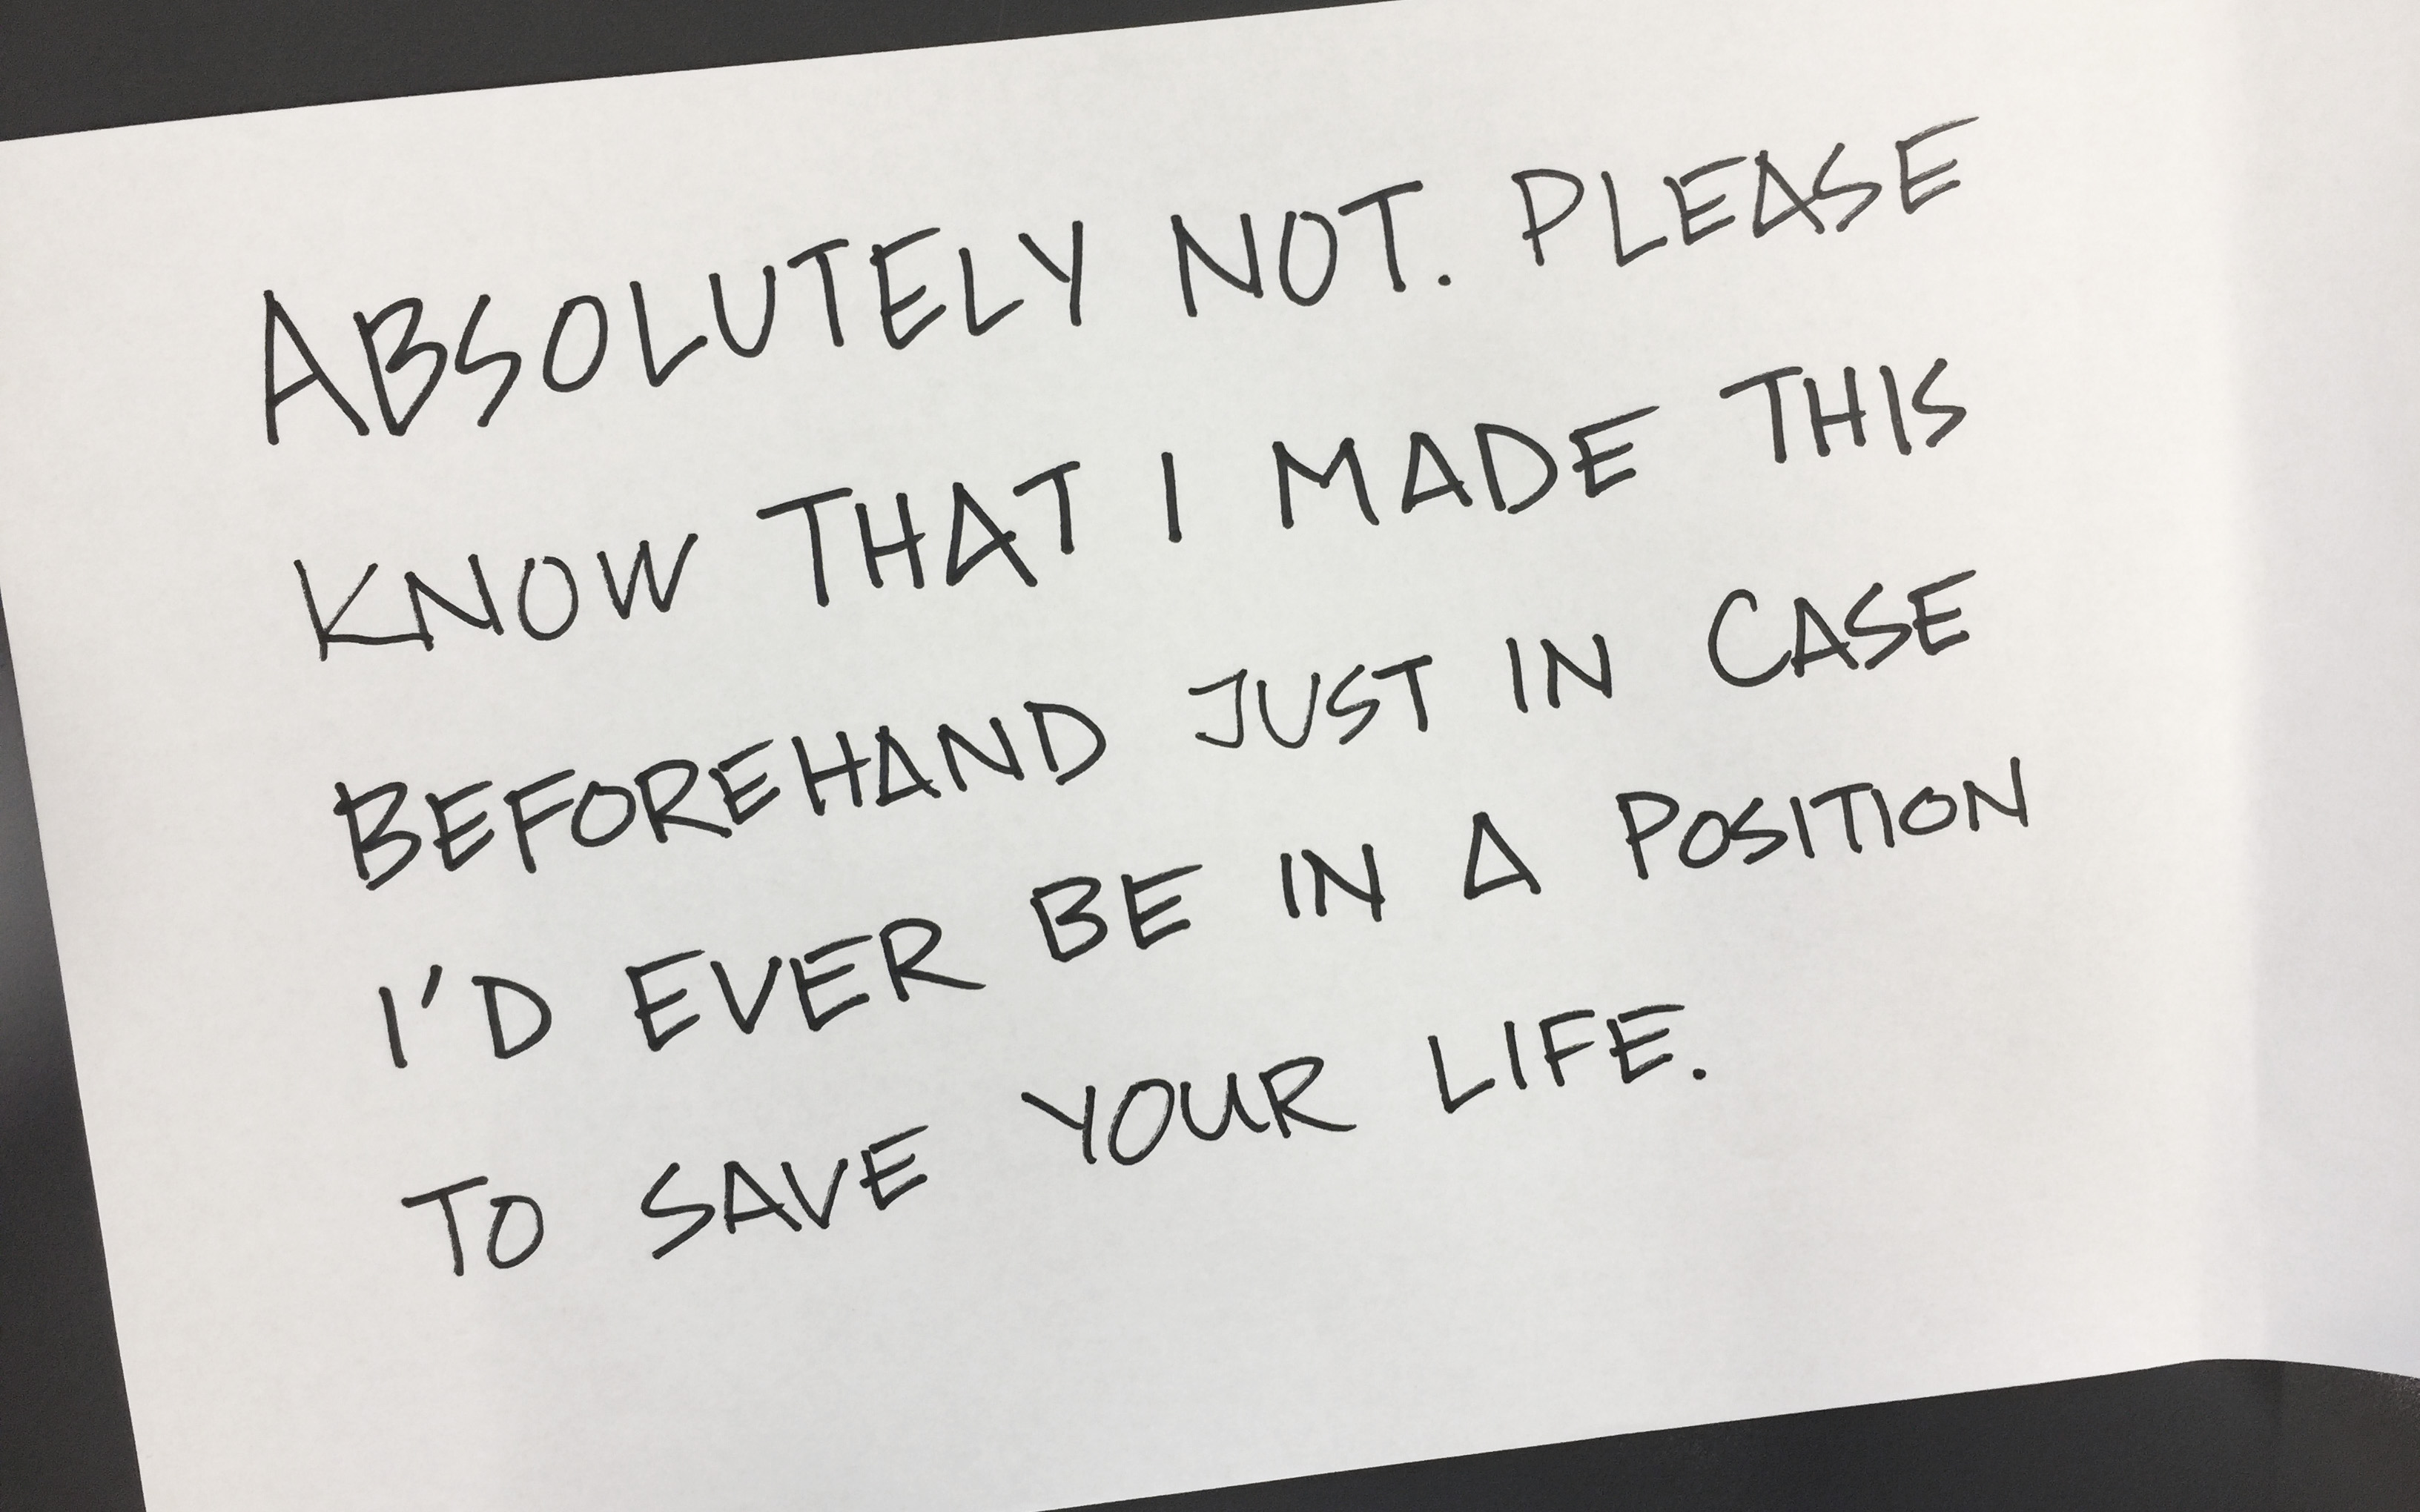 ABSOLUTELY NOT. PLEASE
KNOW THAT I MADE THIS
BEFOREHAND JUST IN CASE
I'D EVER BE IN A POSITION
TO SAVE YOUR LIFE.